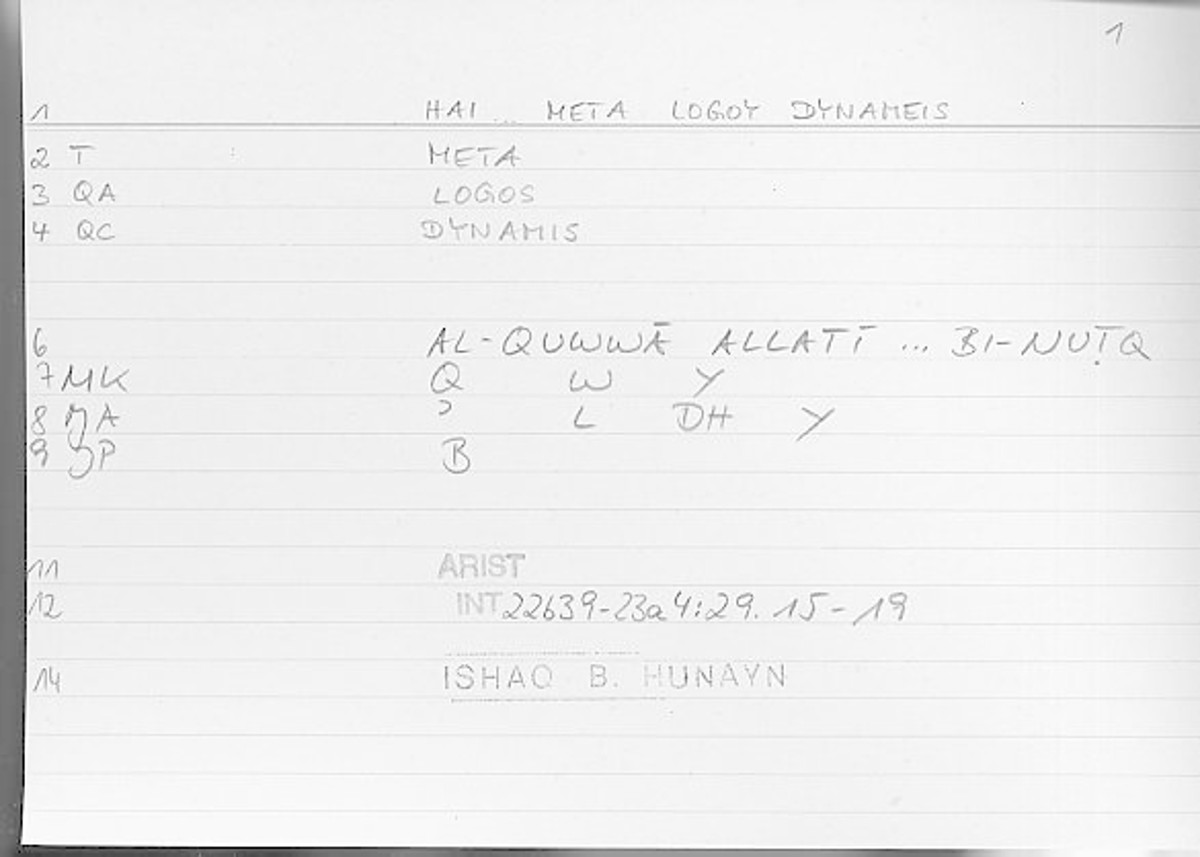 1
1 HAI ... META LOGOY DYNAMEIS
2 T META
3 QA LOGOS
4 QC DYNAMIS
6 AL-QUWWĀ ALLATĪ ... BI-NUṬQ
7 MK Q W Y
8 MA ʾ L DH Y
9 JP B
11 ARIST
12 INT 22b39-23a4:29.15-19
14 ISHAQ B. HUNAYN